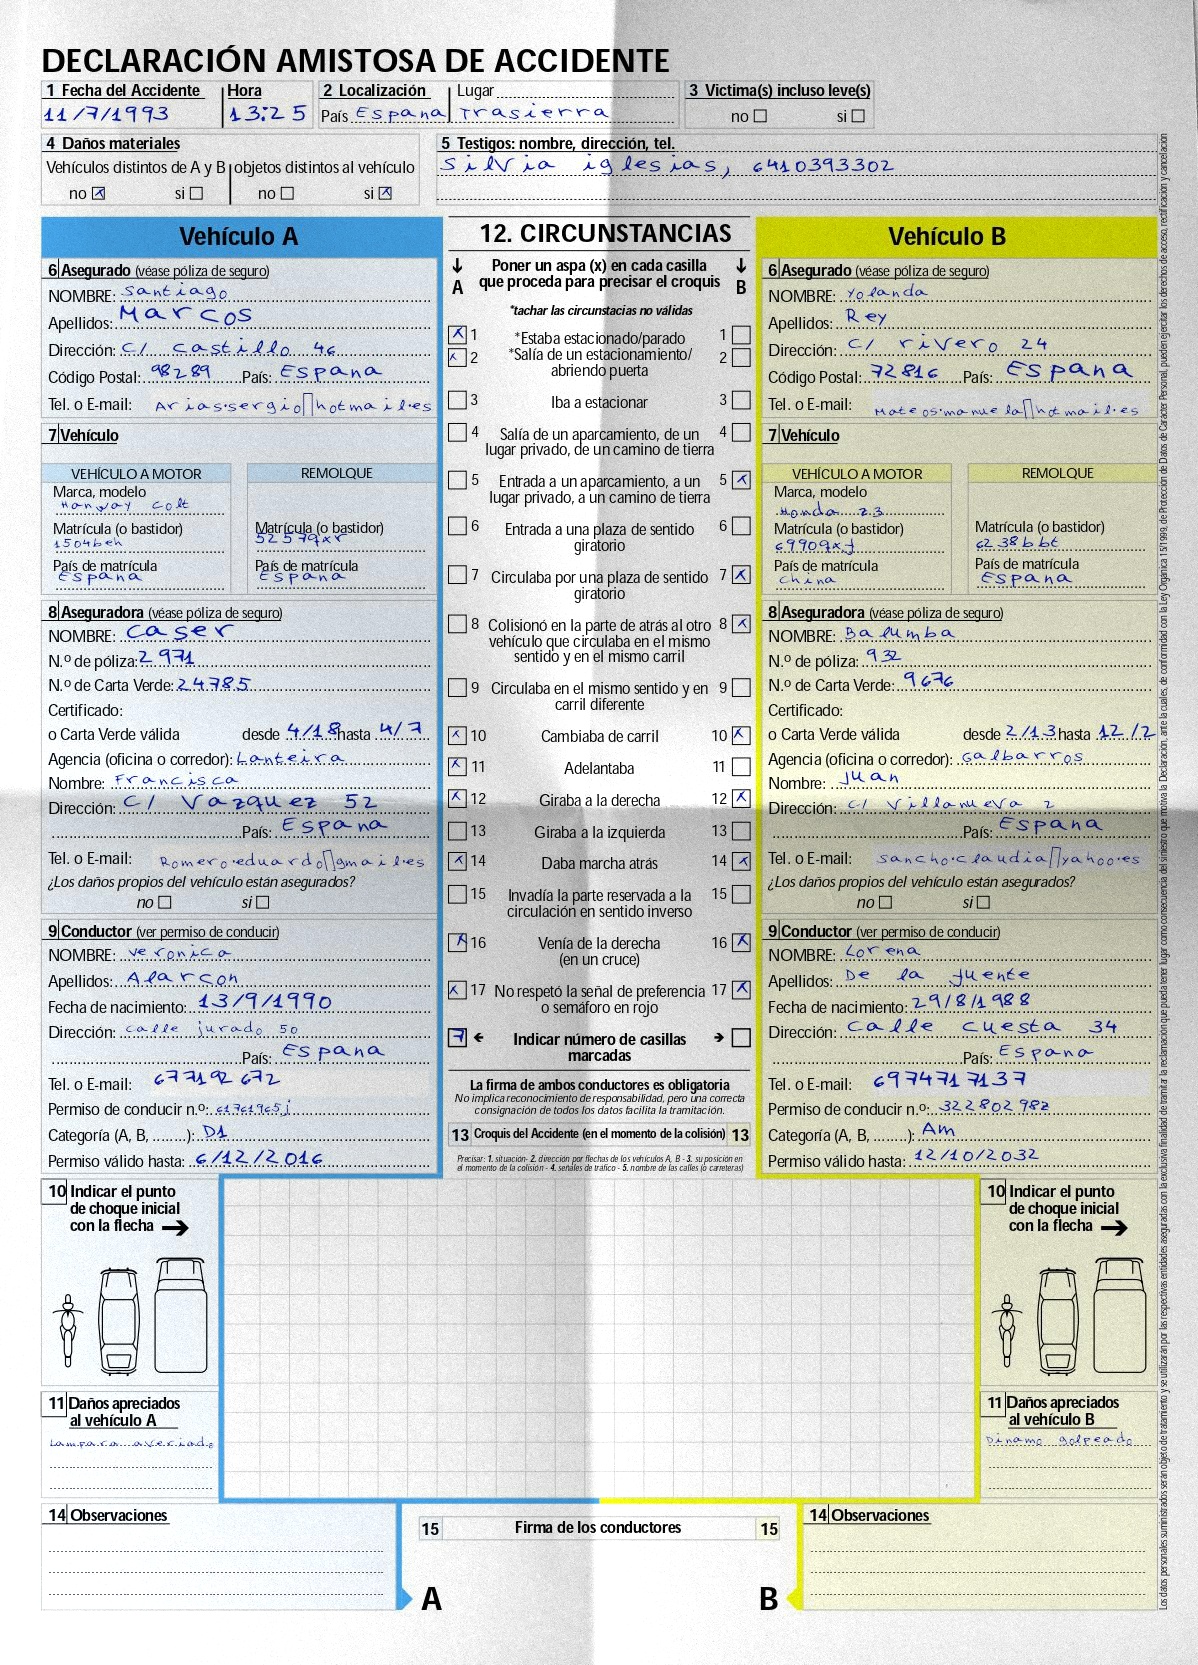 DECLARACIÓN AMISTOSA DE ACCIDENTE
1 Fecha del Accidente Hora
11/7/1993 13:25
2 Localización Lugar
País Espana Trasierra
3 Victima(s) incluso leve(s)
no si
4 Daños materiales
Vehículos distintos de A y B objetos distintos al vehículo
no x si no si x
5 Testigos: nombre, dirección, tel.
Silvia iglesias, 6410393302
Vehículo A
6 Asegurado (véase póliza de seguro)
NOMBRE: Santiago
Apellidos: Marcos
Dirección: C/ castillo 46
Código Postal: 98289 País: Espana
Tel. o E-mail: Arias.sergio hotmail.es
7 Vehículo
VEHÍCULO A MOTOR REMOLQUE
Marca, modelo
Hanway colt
Matrícula (o bastidor) Matrícula (o bastidor)
1504beh 5257qxr
País de matrícula País de matrícula
Espana Espana
8 Aseguradora (véase póliza de seguro)
NOMBRE: caser
N.º de póliza: 2971
N.º de Carta Verde: 24785
Certificado:
o Carta Verde válida desde 4/18 hasta 4/7
Agencia (oficina o corredor): Lanteira
Nombre: Francisca
Dirección: C/ Vazquez 52
País: Espana
Tel. o E-mail: Romero.eduardo gmail.es
¿Los daños propios del vehículo están asegurados?
no si
9 Conductor (ver permiso de conducir)
NOMBRE: veronica
Apellidos: Alarcon
Fecha de nacimiento: 13/9/1990
Dirección: calle jurado 50
País: Espana
Tel. o E-mail: 677192672
Permiso de conducir n.º: 61761965j
Categoría (A, B, ........): D1
Permiso válido hasta: 6/12/2016
12. CIRCUNSTANCIAS
A Poner un aspa (x) en cada casilla que proceda para precisar el croquis B
*tachar las circunstacias no válidas
x 1 *Estaba estacionado/parado 1
x 2 *Salía de un estacionamiento/ 2
abriendo puerta
3 Iba a estacionar 3
4 Salía de un aparcamiento, de un 4
lugar privado, de un camino de tierra
5 Entrada a un aparcamiento, a un 5 x
lugar privado, a un camino de tierra
6 Entrada a una plaza de sentido 6
giratorio
7 Circulaba por una plaza de sentido 7 x
giratorio
8 Colisionó en la parte de atrás al otro 8 x
vehículo que circulaba en el mismo
sentido y en el mismo carril
9 Circulaba en el mismo sentido y en 9
carril diferente
x 10 Cambiaba de carril 10 x
x 11 Adelantaba 11
x 12 Giraba a la derecha 12 x
13 Giraba a la izquierda 13
x 14 Daba marcha atrás 14 x
15 Invadía la parte reservada a la 15
circulación en sentido inverso
x 16 Venía de la derecha 16 x
(en un cruce)
x 17 No respetó la señal de preferencia 17 x
o semáforo en rojo
7 ← Indicar número de casillas →
marcadas
La firma de ambos conductores es obligatoria
No implica reconocimiento de responsabilidad, pero una correcta
consignación de todos los datos facilita la tramitación.
13 Croquis del Accidente (en el momento de la colisión) 13
Precisar: 1. situación- 2. dirección por flechas de los vehículos A, B - 3. su posición en
el momento de la colisión - 4. señales de tráfico - 5. nombre de las calles (o carreteras)
Vehículo B
6 Asegurado (véase póliza de seguro)
NOMBRE: Yolanda
Apellidos: Rey
Dirección: C/ rivero 24
Código Postal: 72816 País: Espana
Tel. o E-mail: Mateos.manuela hotmail.es
7 Vehículo
VEHÍCULO A MOTOR REMOLQUE
Marca, modelo
Honda z3
Matrícula (o bastidor) Matrícula (o bastidor)
6990qxf 6238bbt
País de matrícula País de matrícula
china Espana
8 Aseguradora (véase póliza de seguro)
NOMBRE: Balumba
N.º de póliza: 932
N.º de Carta Verde: 9676
Certificado:
o Carta Verde válida desde 2/13 hasta 12/2
Agencia (oficina o corredor): Galbarros
Nombre: Juan
Dirección: C/ Villanueva 2
País: Espana
Tel. o E-mail: sancho.claudia yahoo.es
¿Los daños propios del vehículo están asegurados?
no si
9 Conductor (ver permiso de conducir)
NOMBRE: Lorena
Apellidos: De la fuente
Fecha de nacimiento: 29/8/1988
Dirección: Calle cuesta 34
País: Espana
Tel. o E-mail: 6974717137
Permiso de conducir n.º: 32280298z
Categoría (A, B, ........): Am
Permiso válido hasta: 12/10/2032
10 Indicar el punto
de choque inicial
con la flecha →
11 Daños apreciados
al vehículo A
Lampara averiado
10 Indicar el punto
de choque inicial
con la flecha →
11 Daños apreciados
al vehículo B
Dinamo golpeado
14 Observaciones
15 Firma de los conductores 15
A B
14 Observaciones